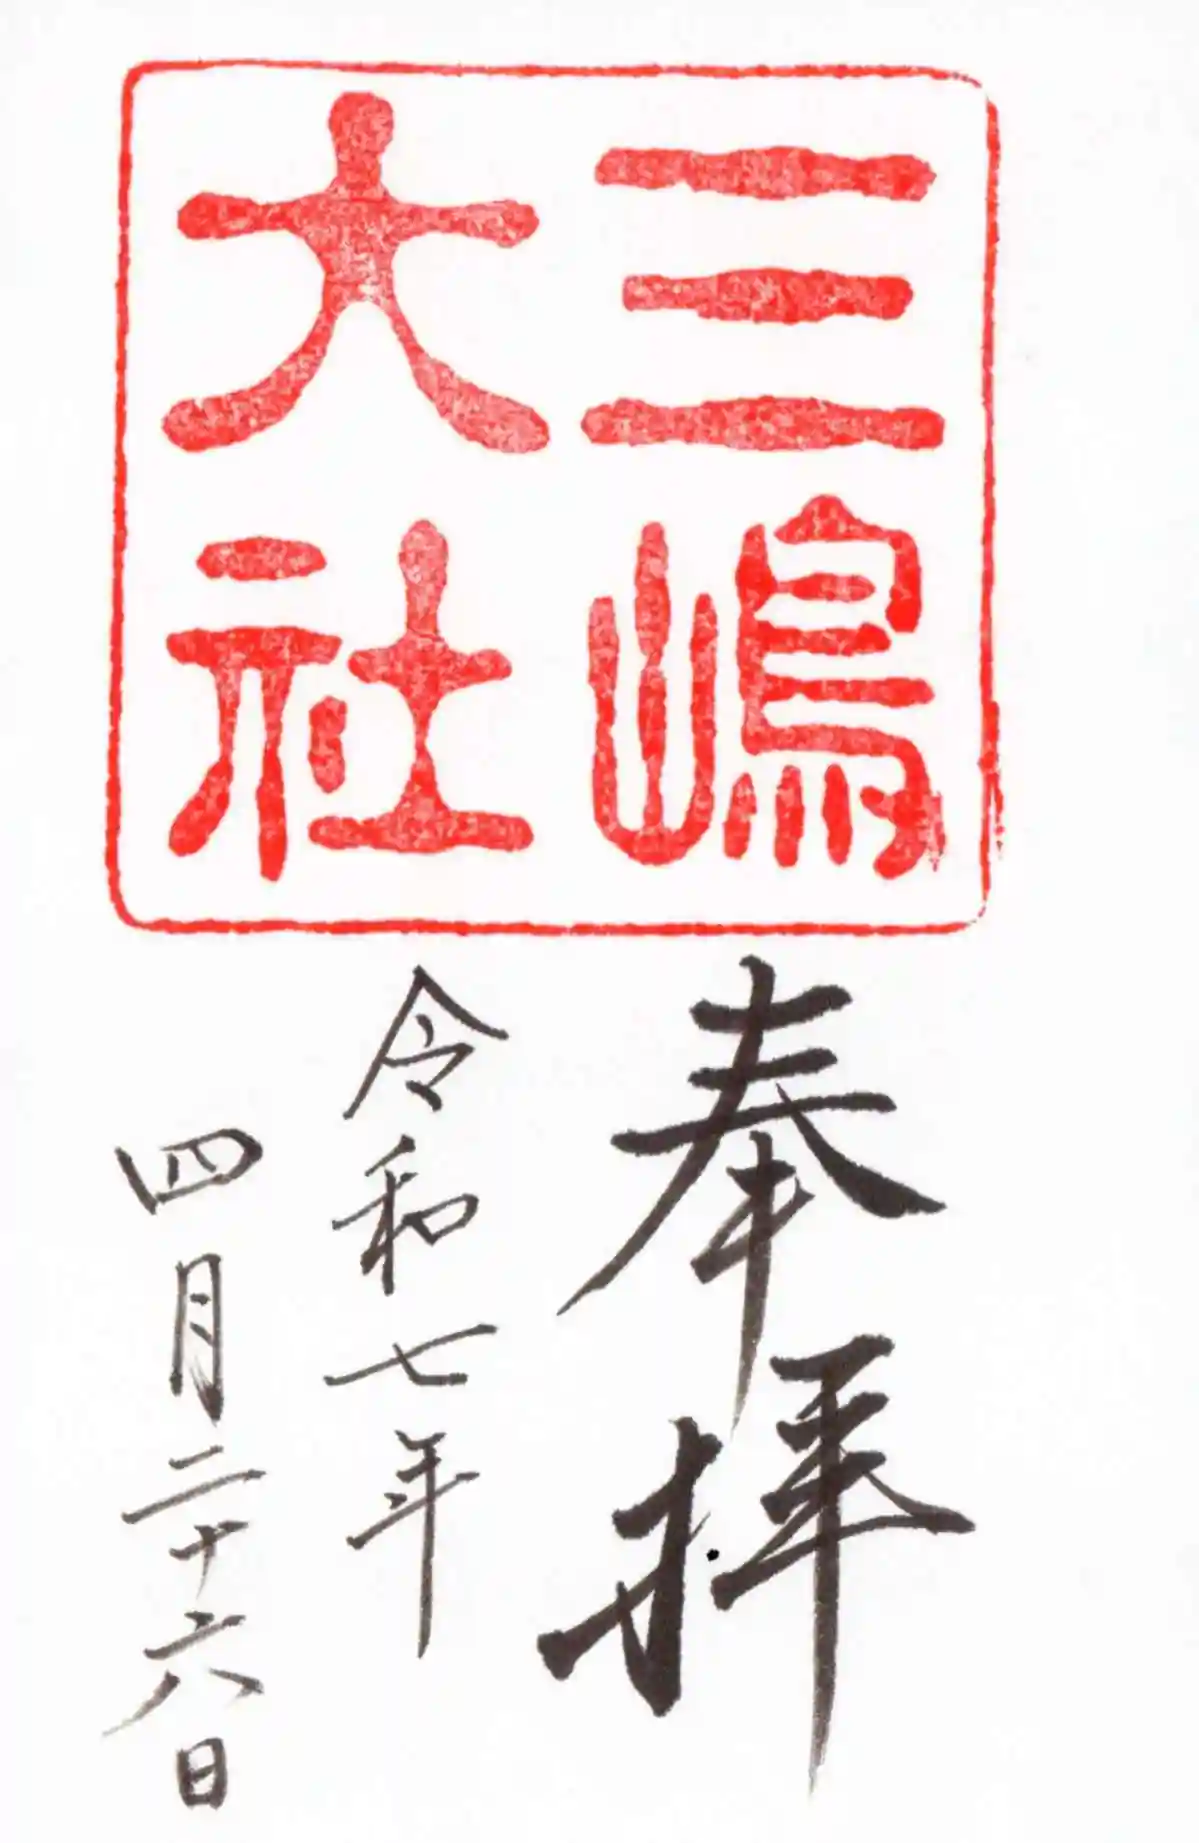 三嶋
大社
奉拝
令和七年
四月二十六日